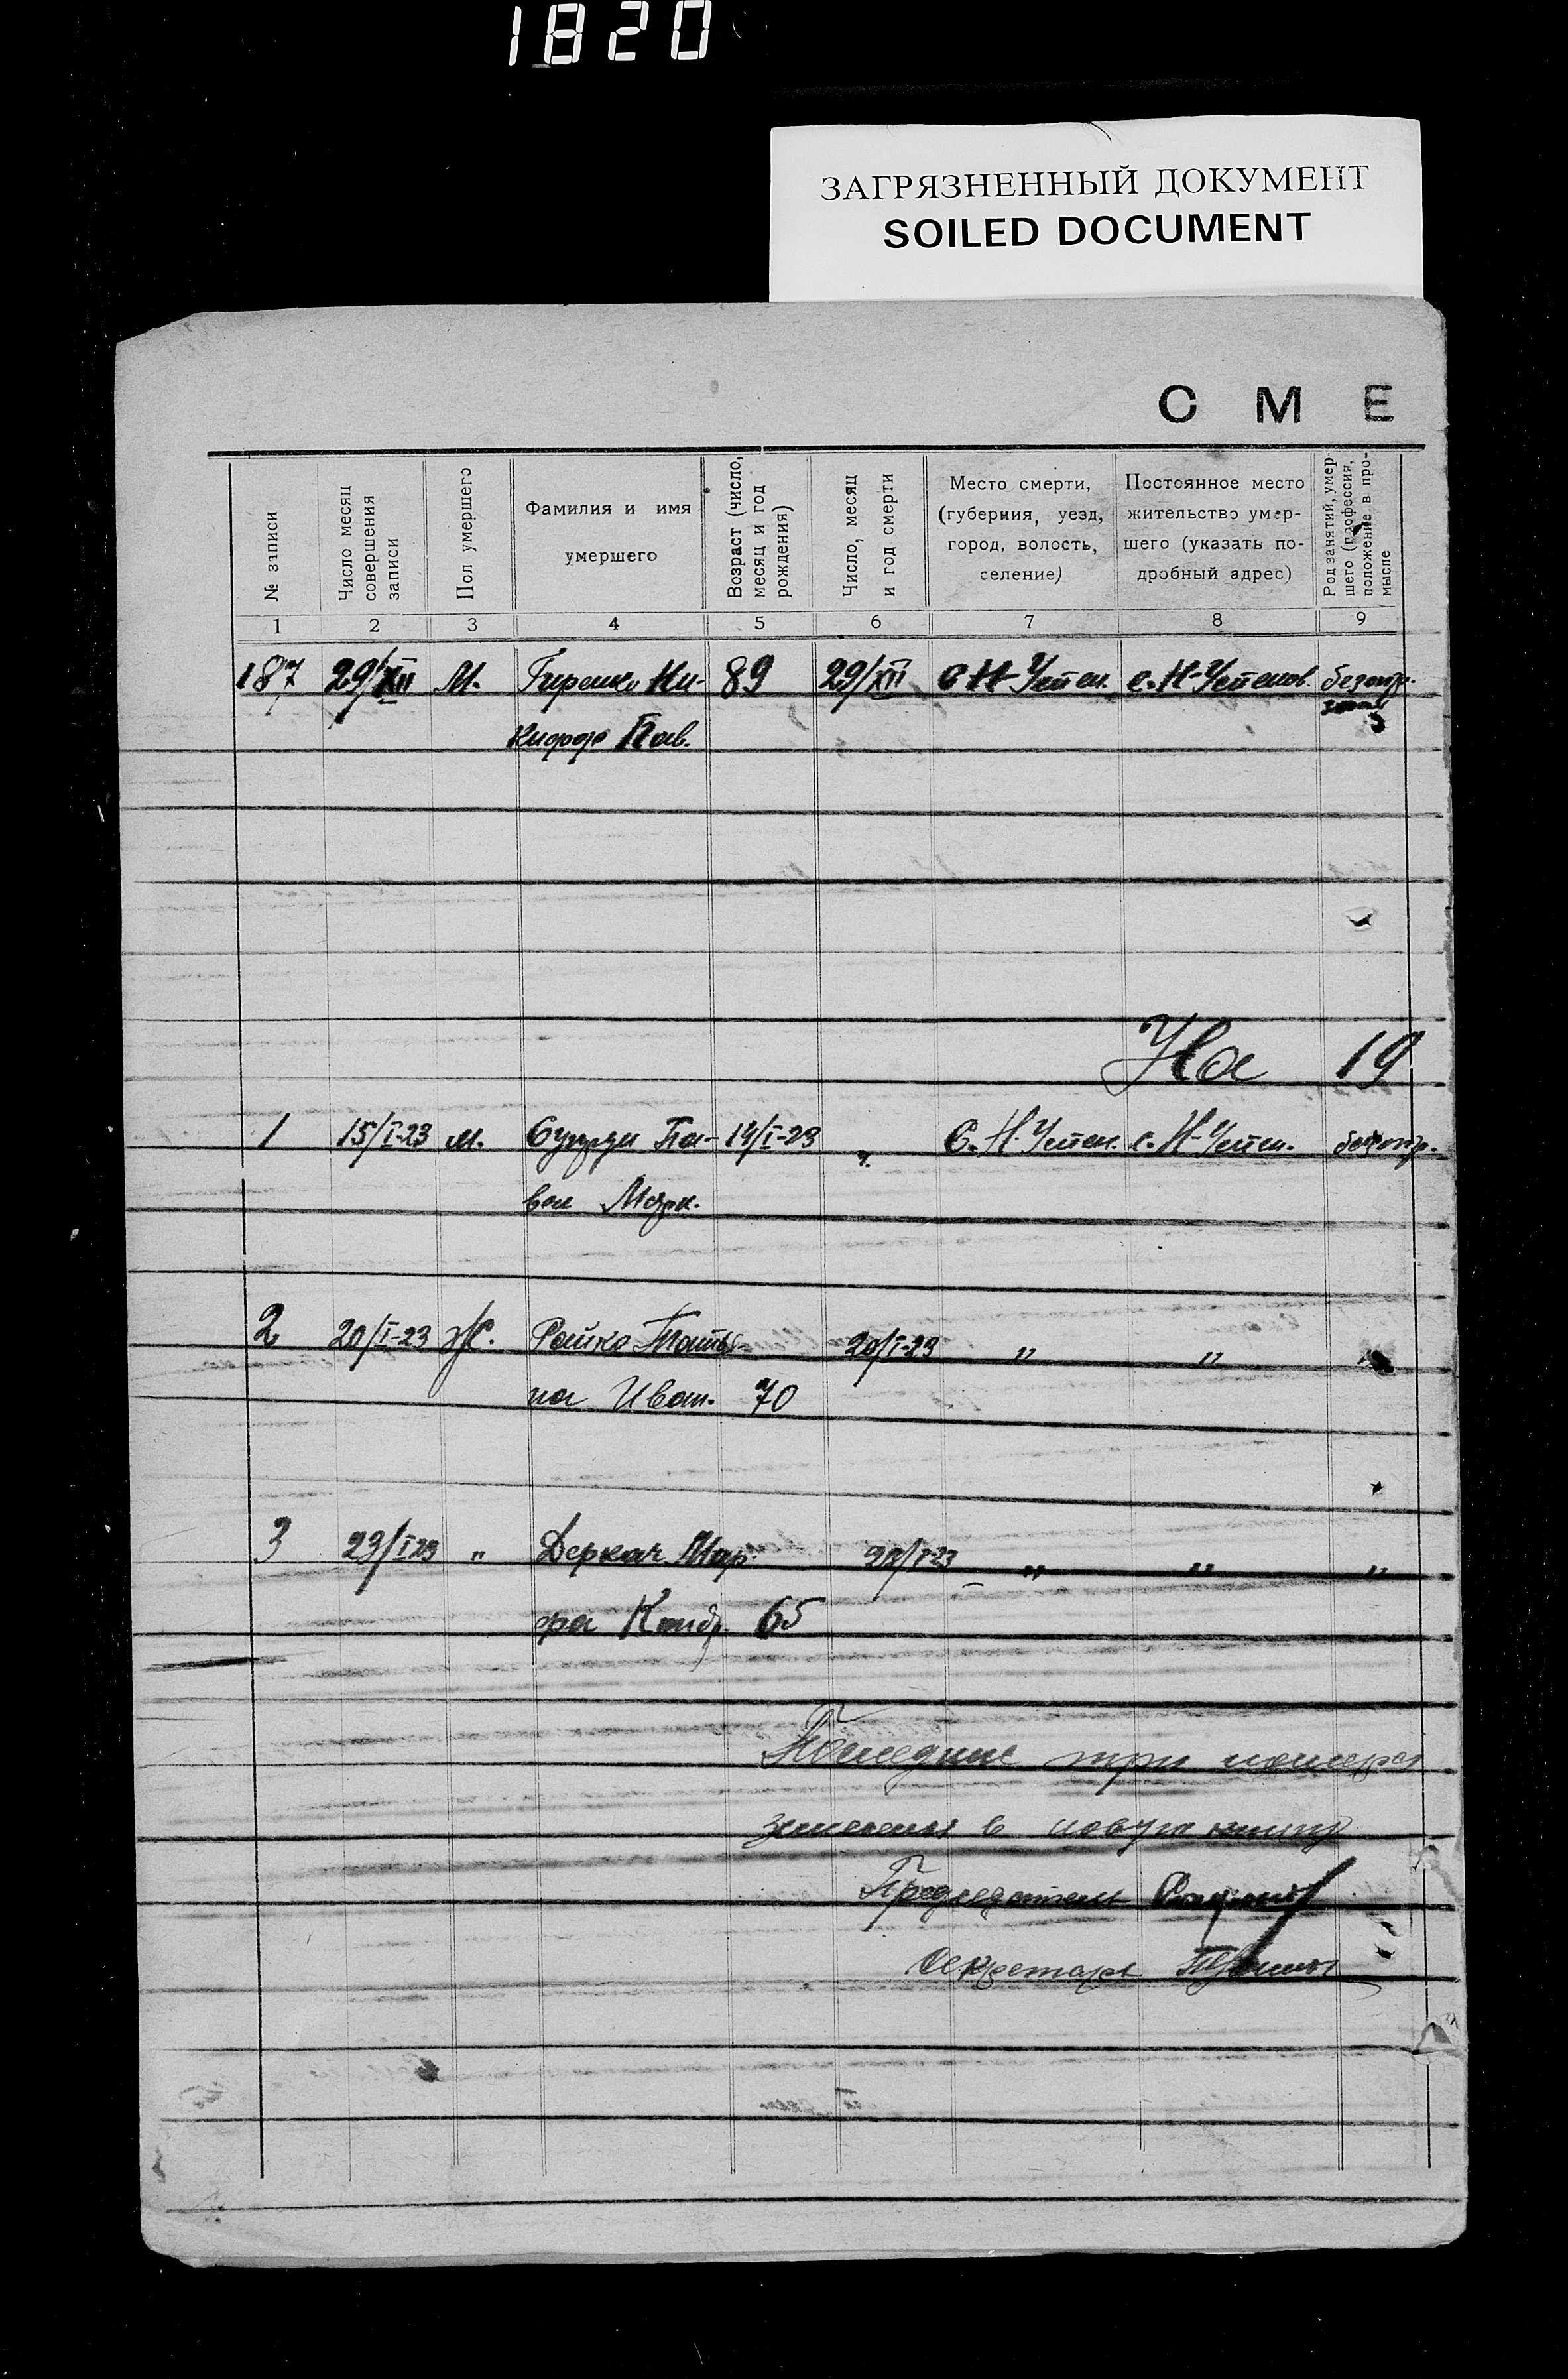 1820
ЗАГРЯЗНЕННЫЙ ДОКУМЕНТ
SOILED DOCUMENT
С М Е
№ записи
Число месяц совершения записи
Пол умершего
Фамилия и имя умершего
Возраст (число, месяц и год рождения)
Число, месяц и год смерти
Место смерти, (губерния, уезд, город, волость, селение)
Постоянное место жительство умершего (указать подробный адрес)
Род занятий, умершего (профессия, положение в промысле
1 2 3 4 5 6 7 8 9
187 29/XII М. Гиренко Ни- 89 29/XII С Н-Успен. с. Н-Успенов.
Пав.
На 19
1 15/I-23 м. Па- 14/I-23 " С. Н. Успен. с. Н-Успен.
вел Марк.
2 20/I-23 Ж. Райко Татья- 20/I-23 " "
на Иван. 70
3 23/I 23 " Деркач Мар- " " "
фа Конд. 65
Последние три номера
занесены в новую книгу
Председатель
Секретарь